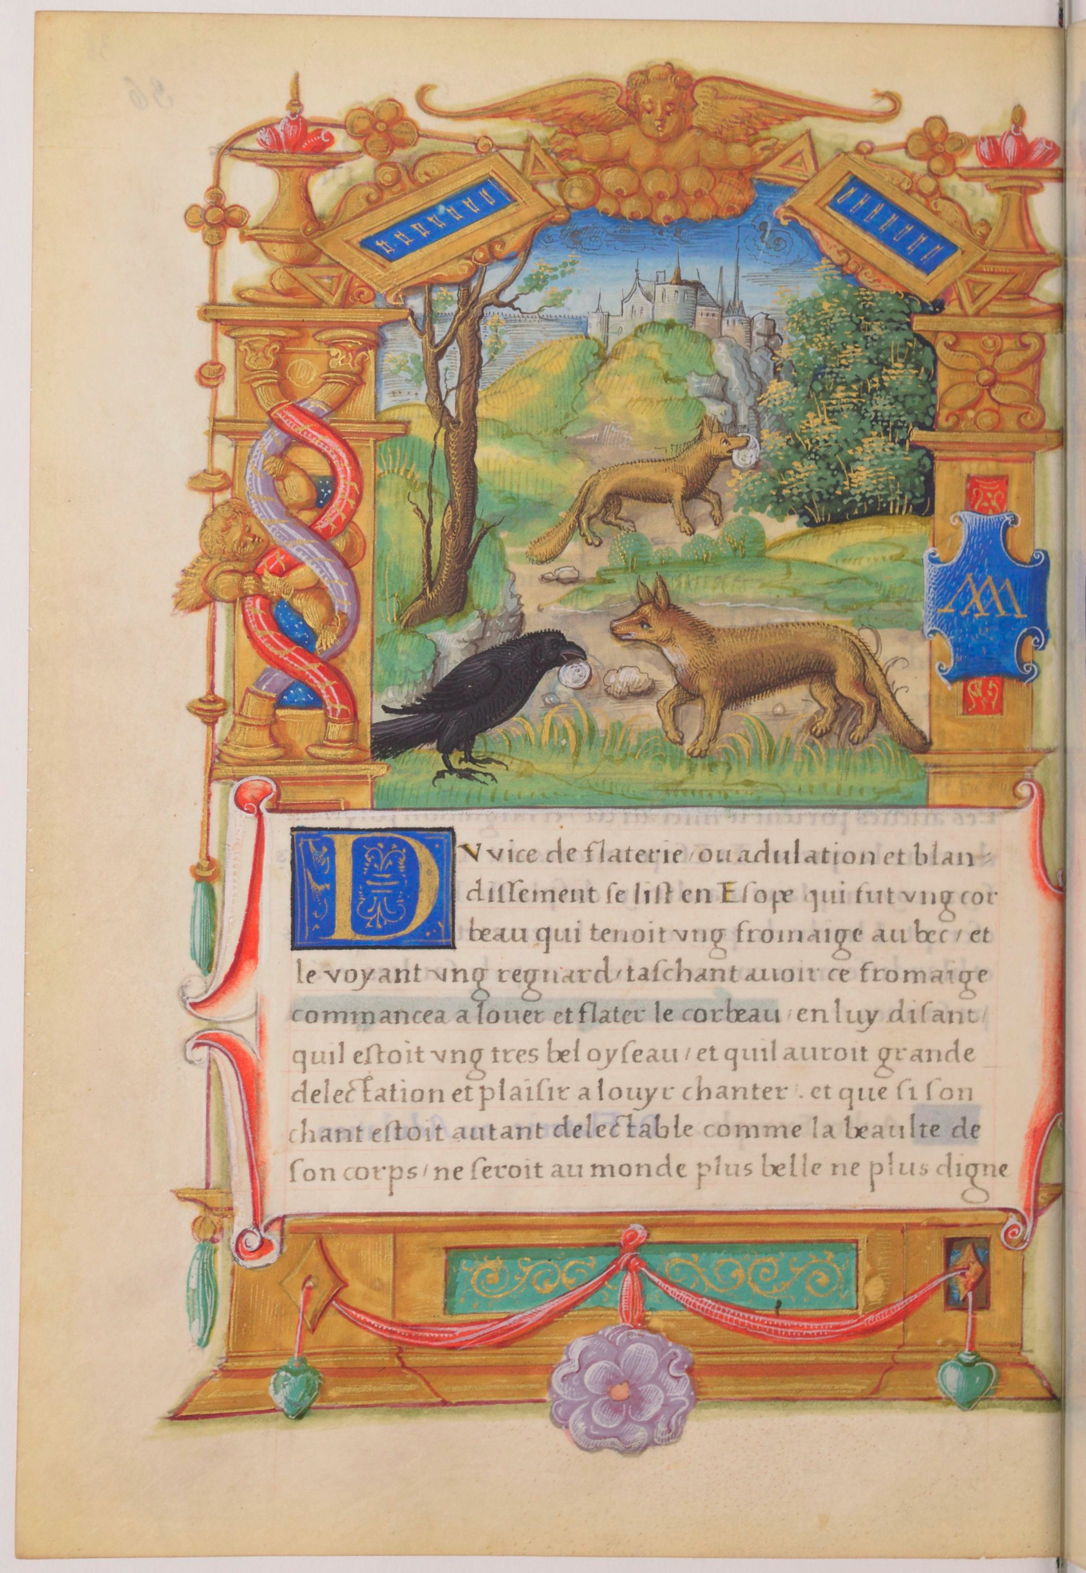 DV vice de flaterie / ou adulation et blan-
dissement se list en Esope qui fut vng cor
beau qui tenoit vng fromaige au bec / et
le voyant vng regnard / taschant auoir ce fromaige
commancea a louer et flater le corbeau / en luy disant /
quil estoit vng tres bel oyseau / et quil auroit grande
delectation et plaisir a louyr chanter . et que si son
chant estoit autant delectable comme la beaulte de
son corps / ne seroit au monde plus belle ne plus digne